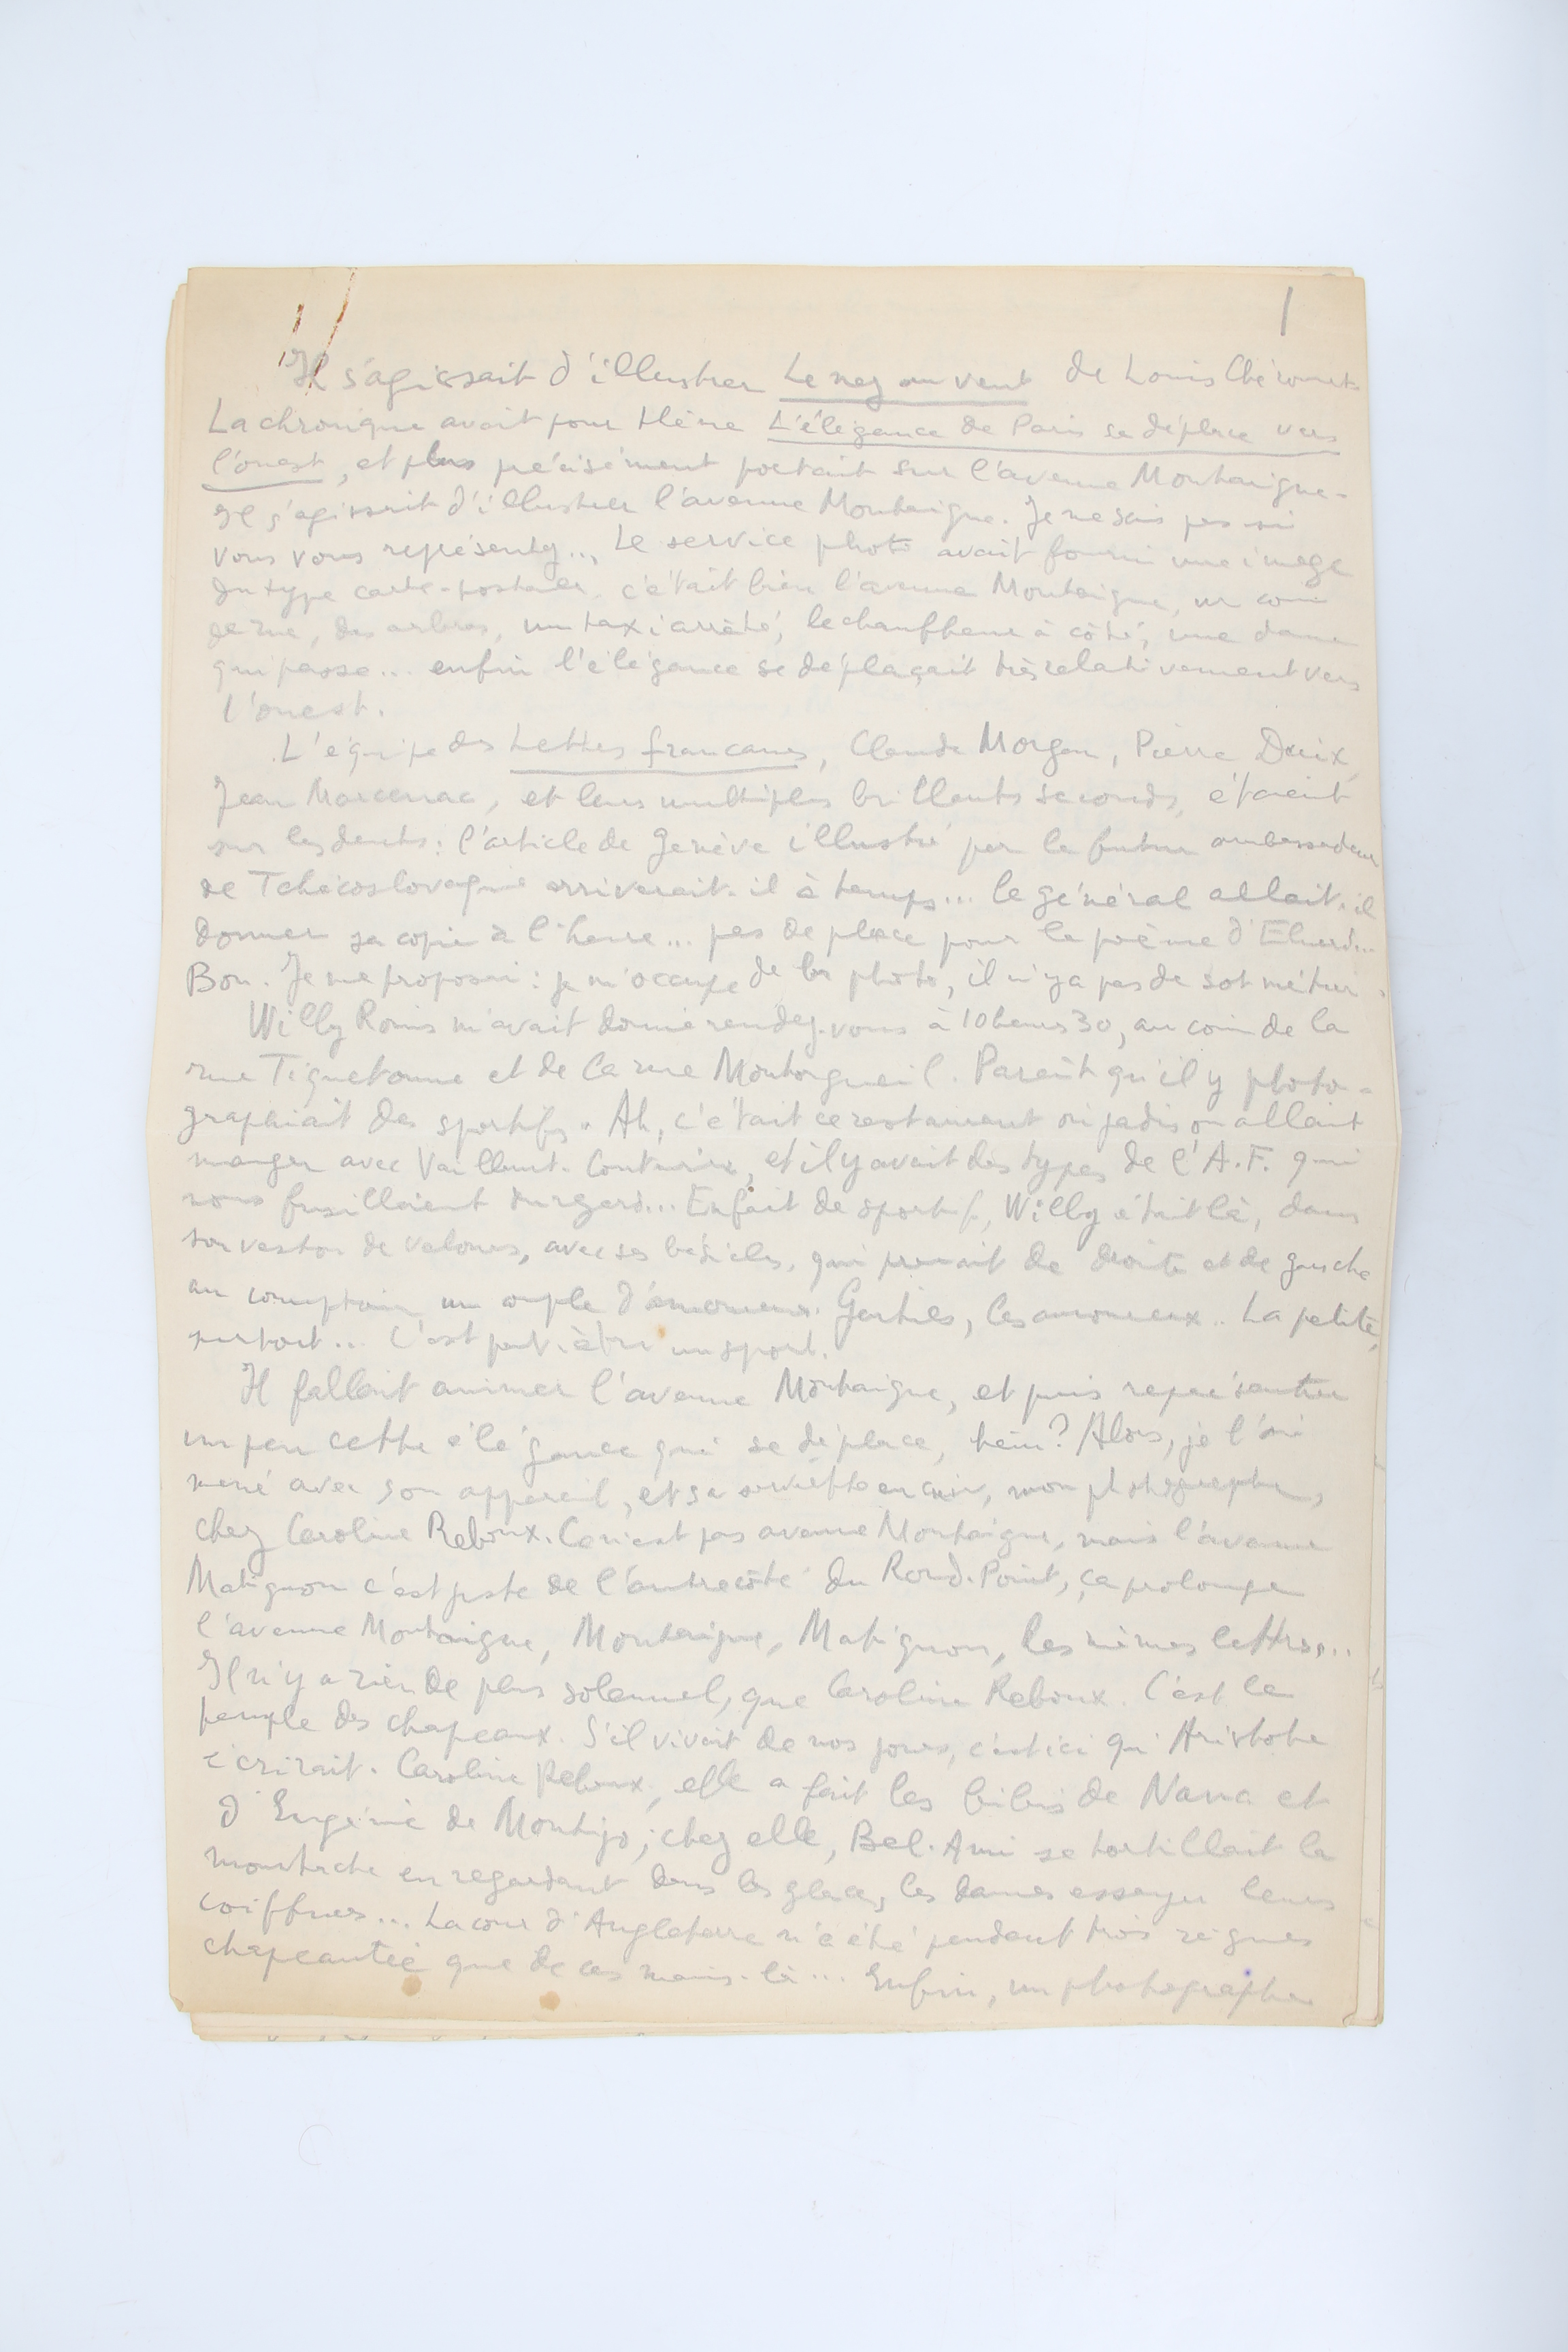 1
Il s'agissait d'illustrer Le nez au vent de Louis Chéronnet
La chronique avait pour thème L'élégance de Paris se déplace vers
l'ouest, et plus précisément portait sur l'avenue Montaigne.
Il s'agissait d'illustrer l'avenue Montaigne. Je ne sais pas si
vous vous représentez... Le service photo avait fourni une image
du type carte-postale, c'était bien l'avenue Montaigne, un coin
de rue, des arbres, un taxi arrêté, le chauffeur à côté, une dame
qui passe... enfin l'élégance se déplaçait très relativement vers
l'ouest.
L'équipe des Lettres françaises, Claude Morgan, Pierre Daix,
Jean Marcenac, et leurs multiples brillants seconds, étaient
sur les dents : l'article de Genève illustré par le futur ambassadeur
de Tchécoslovaquie arriverait-il à temps... le général allait-il
donner sa copie à l'heure... pas de place pour le poème d'Eluard...
Bon. Je me proposai : je m'occupe de la photo, il n'y a pas de sot métier.
Willy Ronis m'avait donné rendez-vous à 10 heures 30, au coin de la
rue Tiquetonne et de la rue Montorgueil. Paraît qu'il y photo-
graphiait des sportifs. Ah, c'était ce restaurant où jadis on allait
manger avec Vaillant-Couturier, et il y avait des types de l'A.F. qui
nous fusillaient du regard... En fait de sportif, Willy était là, dans
son veston de velours, avec ses bésicles, qui prenait de droite et de gauche
au comptoir un couple d'amoureux. Gentils, les amoureux.. La petite,
surtout... C'est peut-être un sport.
Il fallait animer l'avenue Montaigne, et puis représenter
un peu cette élégance qui se déplace, hein ? Alors, je l'ai
mené avec son appareil, et sa serviette en cuir, mon photographe,
chez Caroline Reboux. Ce n'est pas avenue Montaigne, mais l'avenue
Matignon c'est juste de l'autre côté du Rond-Point, ça prolonge
l'avenue Montaigne, Montaigne, Matignon, les mêmes lettres...
Il n'y a rien de plus solennel, que Caroline Reboux. C'est le
temple des chapeaux. S'il vivait de nos jours, c'est ici qu'Aristote
écrirait. Caroline Reboux, elle a fait les bibis de Nana et
d'Eugénie de Montijo ; chez elle, Bel-Ami se tortillait la
moustache en regardant dans les glaces, les dames essayer leurs
coiffures... La cour d'Angleterre n'a été pendant trois règnes
chapeautée que de ces mains-là... Enfin, un photographe